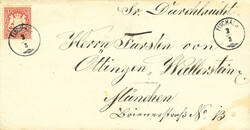 Sr. Durchlaucht
Herrn Fürsten von
Öttingen, Wallerstein
München
Briennerstraße No 13